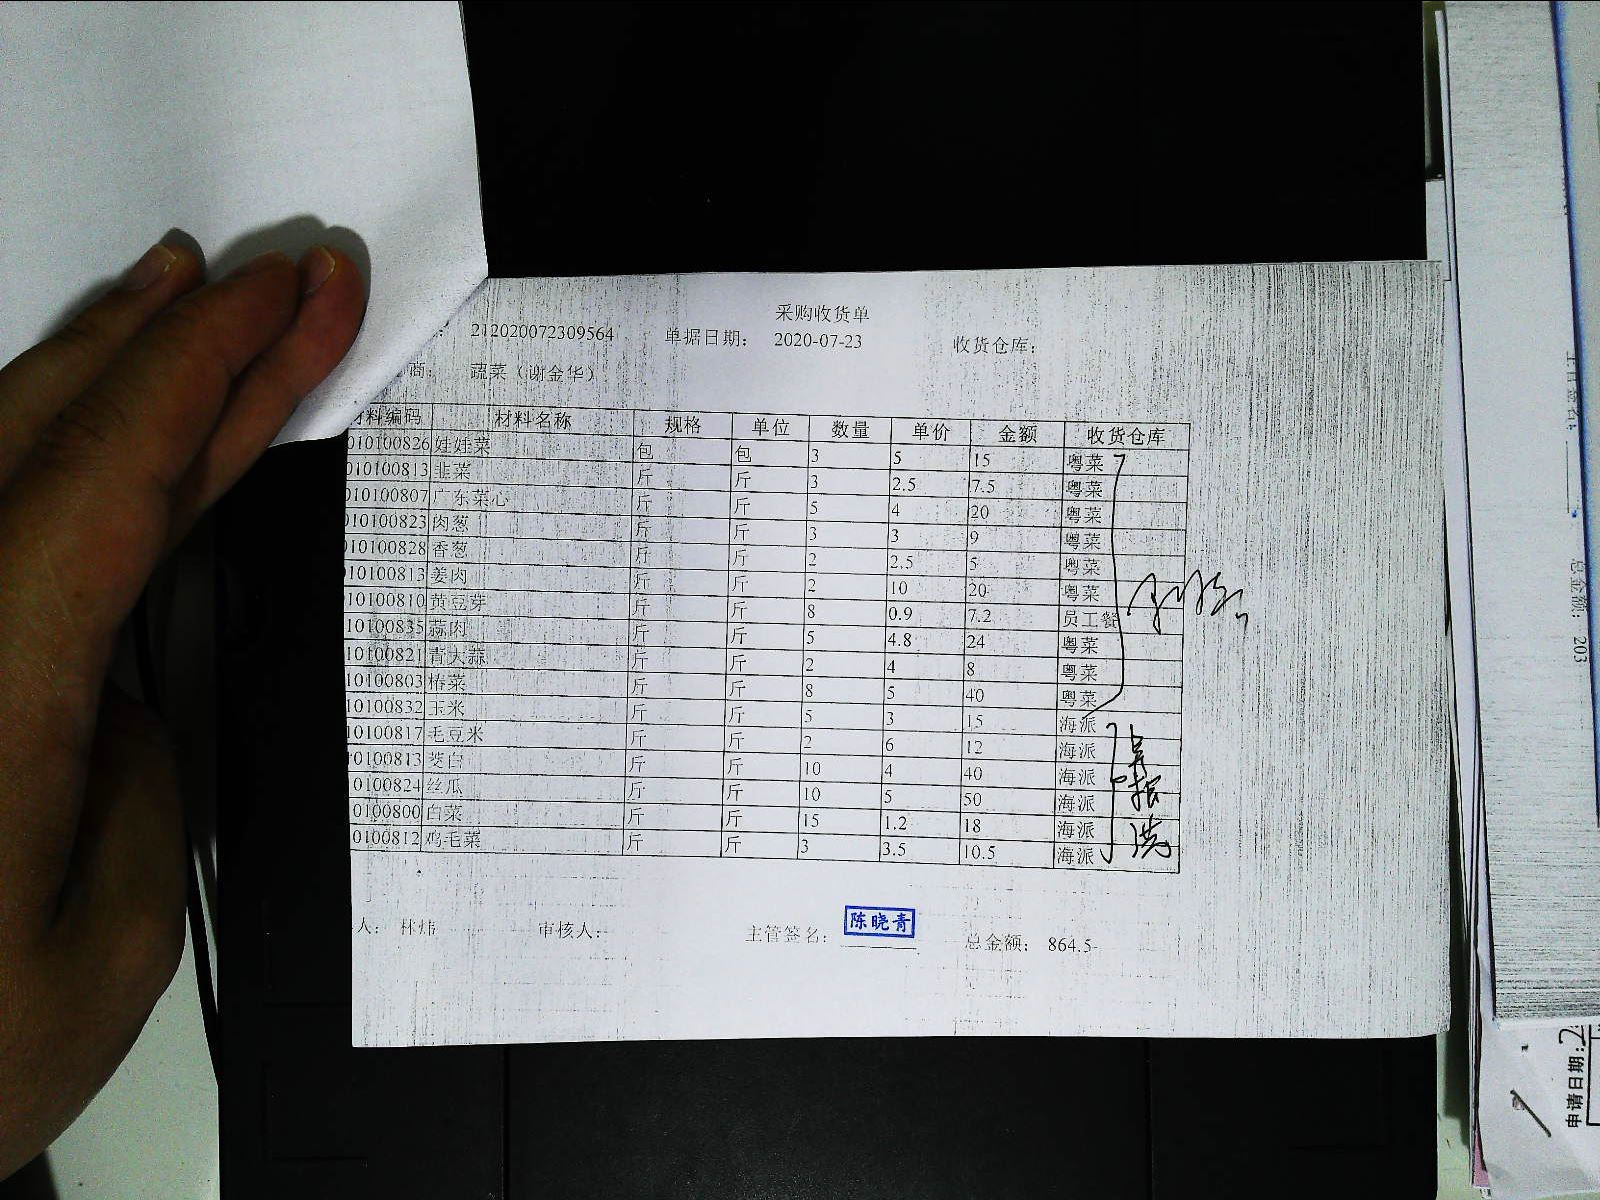 采购收货单
212020072309564 单据日期： 2020-07-23 收货仓库：
商： 蔬菜（谢金华）
材料编码 材料名称 规格 单位 数量 单价 金额 收货仓库
010100826 娃娃菜 包 包 3 5 15 粤菜
010100813 韭菜 斤 斤 3 2.5 7.5 粤菜
010100807 广东菜心 斤 斤 5 4 20 粤菜
010100823 肉葱 斤 斤 3 3 9 粤菜
010100828 香葱 斤 斤 2 2.5 5 粤菜
010100813 姜肉 斤 斤 2 10 20 粤菜
010100810 黄豆芽 斤 斤 8 0.9 7.2 员工餐
10100835 蒜肉 斤 斤 5 4.8 24 粤菜
10100821 青大蒜 斤 斤 2 4 8 粤菜
10100803 椿菜 斤 斤 8 5 40 粤菜
10100832 玉米 斤 斤 5 3 15 海派
10100817 毛豆米 斤 斤 2 6 12 海派
10100813 茭白 斤 斤 10 4 40 海派
0100824 丝瓜 斤 斤 10 5 50 海派
0100800 白菜 斤 斤 15 1.2 18 海派
0100812 鸡毛菜 斤 斤 3 3.5 10.5 海派
人： 林炜 审核人： 主管签名： 陈晓青 总金额： 864.5
总金额： 203
申请日期：2